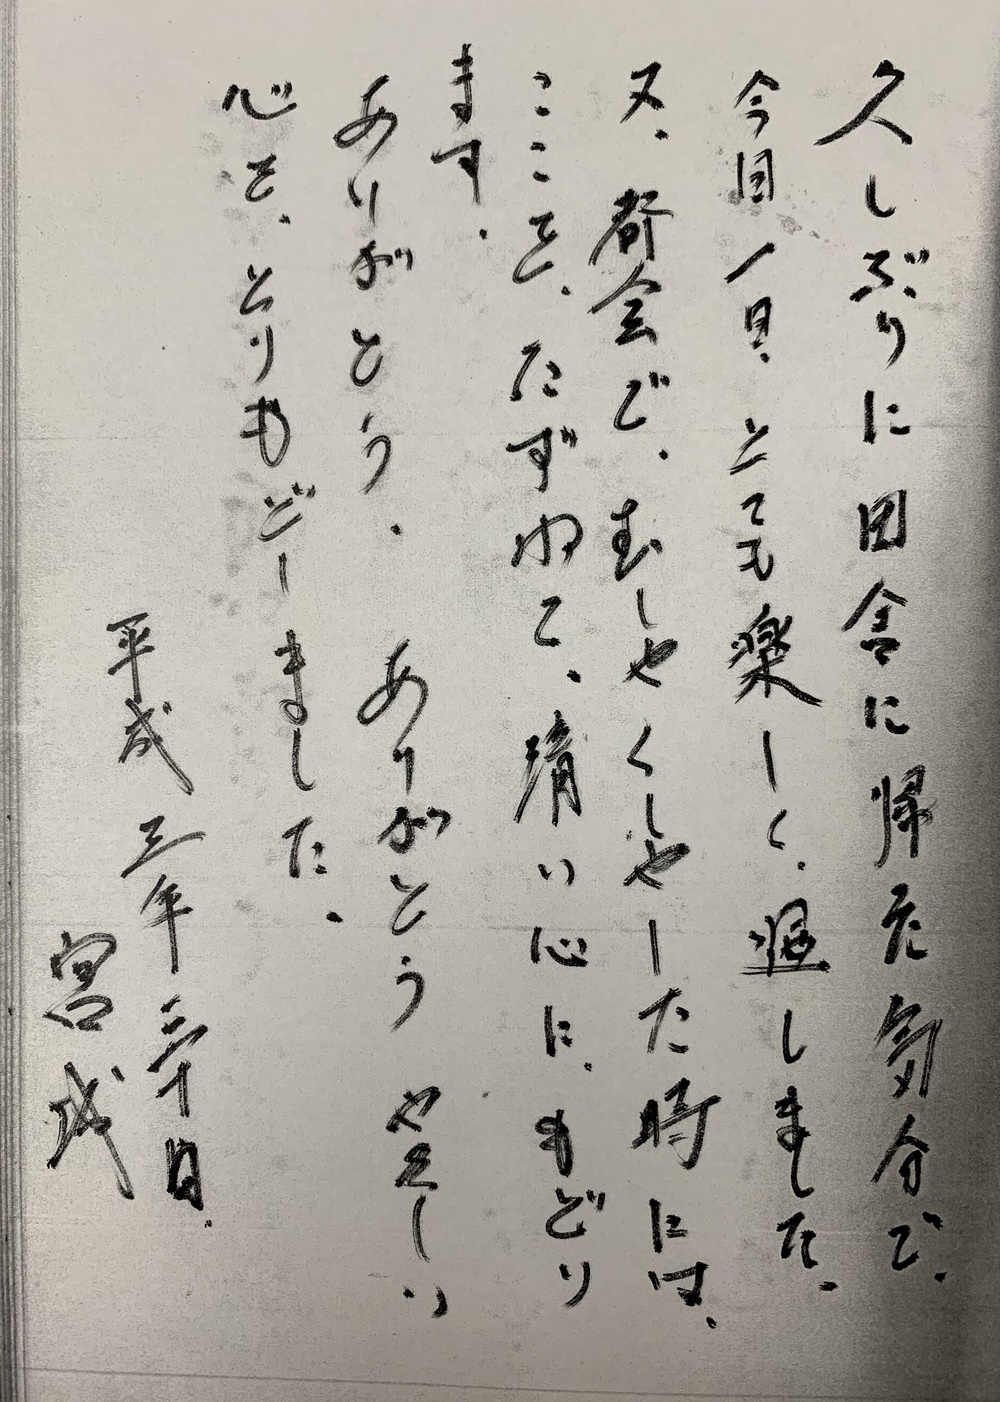 久しぶりに田舎に帰た気分で、
今日一日、とても楽しく、過しました、
又、都会で、むしゃくしゃした時には、
ここを、たずねて、清い心に、もどり
ます、
ありがとう、ありがとう やさしい
心を、とりもどしました、
平成三年三十日、
宮城